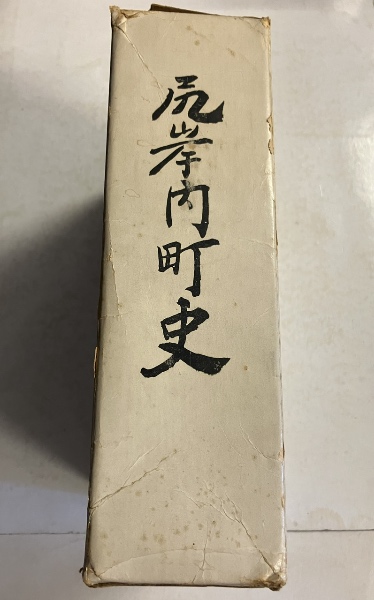 尻岸内町史